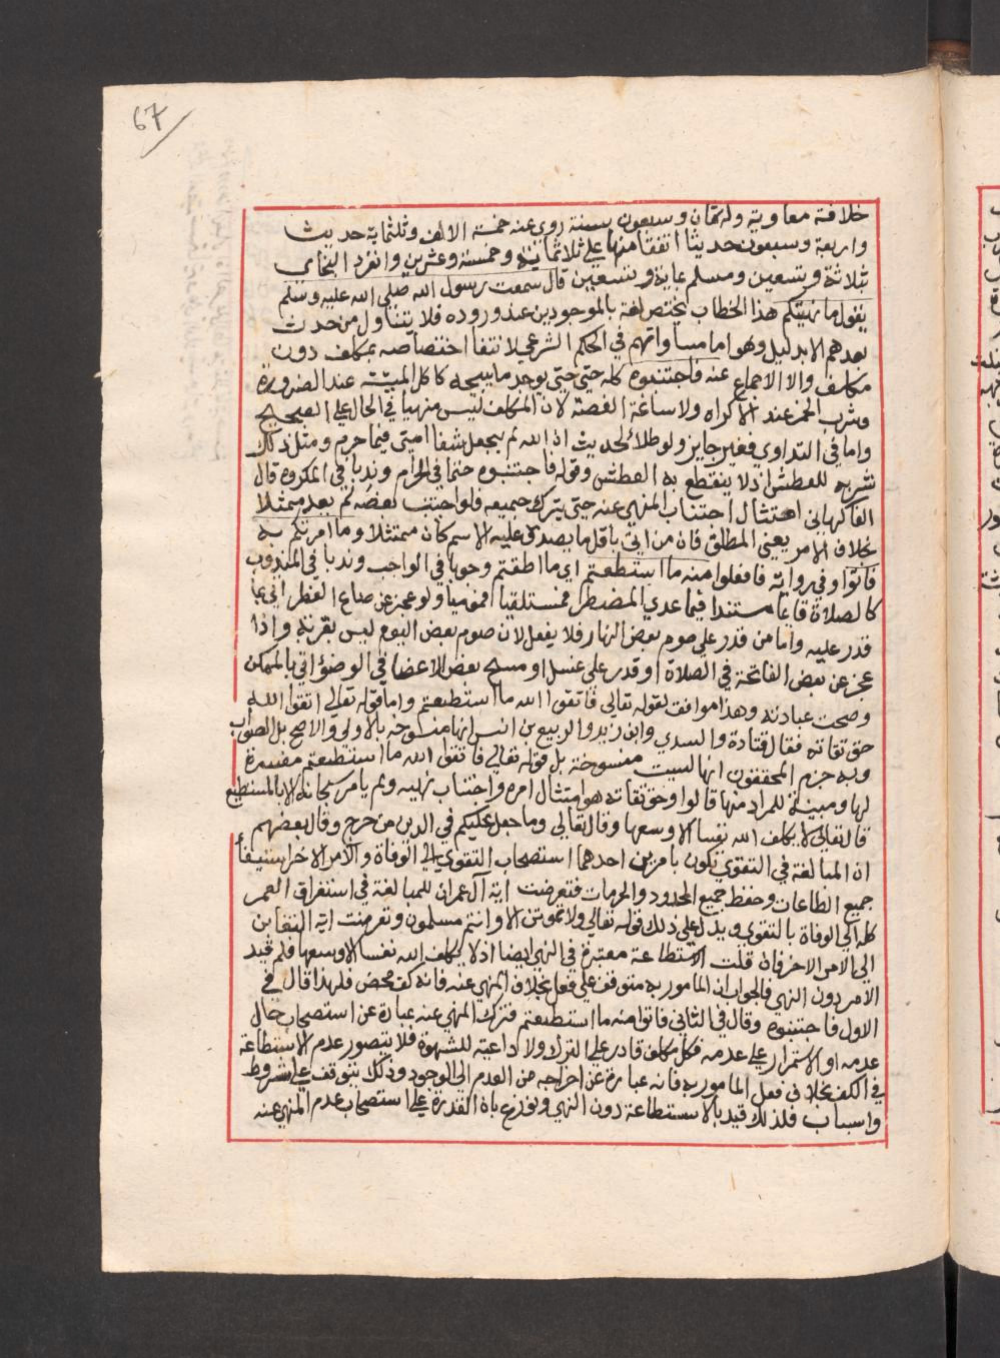 67
خلافة معاوية وله ثمان وسبعون سنة روي عنه خمسة الاف وثلثماية حديث
واربعة وسبعون حديثا اتفقا منها علي ثلاثماية وخمسة وعشرين وانفرد البخاري
بثلاثة وتسعين ومسلم بماية وتسعين قال سمعت رسول الله صلي الله عليه وسلم
يقول ما نهيتكم هذا الخطاب يختص لغة بالموجودين عند وروده فلا يتناول من حدث
بعدهم الا بدليل وهو اما مساواتهم في الحكم الشرعي لانتفا اختصاصه بمكلف دون
مكلف والا الاجماع عنه فاجتنبوه كله حتي حتي يوجد ما يبيحه كاكل الميتة عند الضرورة
وشرب الخمر عند الاكراه ولاساغة الغصة لان المكلف ليس منهيا في الحال علي الصحيح
واما في التداوي فغير جايز ولو طلا لحديث ان الله لم يجعل شفا امتي فيما حرم ومثل ذلك
شربه للعطش اذ لا ينقطع به العطش وقوله فاجتنبوه حتما في الحرام وندبا في المكروه قال
الفاكهاني امتثال اجتناب المنهي عنه حتي يترك جميعه فلو اجتنب بعضه لم يعد ممتثلا
بخلاف الامر يعني المطلق فان من اتي باقل ما يصدق عليه الاسم كان ممتثلا وما امرتكم به
فاتوا وفي رواية فافعلوا منه ما استطعتم اي ما اطقتم وجوبا في الواجب وندبا في المندوب
كالصلاة قايما مستندا فيما عدي المضطر فمستلقيا فموميا ولو عجز عن صاع الفطر اتي بما
قدر عليه واما من قدر علي صوم بعض النهار فلا يفعل لان صوم بعض اليوم ليس بقربة واذا
عجز عن بعض الفاتحة في الصلاة او قدر علي غسل او مسح بعض الاعضا في الوضو اتي بالممكن
وصحت عبادته وهذا موافق لقوله تعالي فاتقوا الله ما استطعتم واما قوله تعالي اتقوا الله
حق تقاته فقال قتادة والسدي وابن زيد والربيع بن انس انها منسوخة بالاولي والاصح بل الصواب
وبه جزم المحققون انها ليست منسوخة بل قوله تعالي فاتقوا الله ما استطعتم مفسرة
لها ومبينة للمراد منها قالوا وحق تقاته هو امتثال امره واجتناب نهيه ولم يامر سبحانه الا بالمستطيع
قال تعالي لا يكلف الله نفسا الا وسعها وقال تعالي وما جعل عليكم في الدين من حرج وقال بعضهم
ان المبالغة في التقوي تكون بامرين احدهما استصحاب التقوي الي الوفاة والامر الاخر استيفا
جميع الطاعات وحفظ جميع الحدود والحرمات فتعرضت اية آل عمران للمبالغة في استغراق العمر
كله الي الوفاة بالتقوي ويدل علي ذلك قوله تعالي ولا تموتن الا وانتم مسلمون وتعرضت اية التغابن
الي الامر الاخر فان قلت الاستطاعة معتبرة في النهي ايضا اذ لا يكلف الله نفسا الا وسعها فلم قيد
الامر دون النهي فالجواب ان المامور به متوقف علي فعل بخلاف المنهي عنه فانه كف محض فلهذا قال في
الاول فاجتنبوه وقال في الثاني فاتوا منه ما استطعتم فترك المنهي عنه عبارة عن استصحاب حال
عدمه او الاستمرار علي عدمه فكل مكلف قادر علي الترك ولا داعية للشهوة فلا يتصور عدم الاستطاعة
في الكف بخلاف فعل المامور به فانه عبارة عن اخراجه من العدم الي الوجود وذلك يتوقف علي شروط
واسباب فلذلك قيد بالاستطاعة دون النهي ونوزع بان القدرة علي استصحاب عدم المنهي عنه